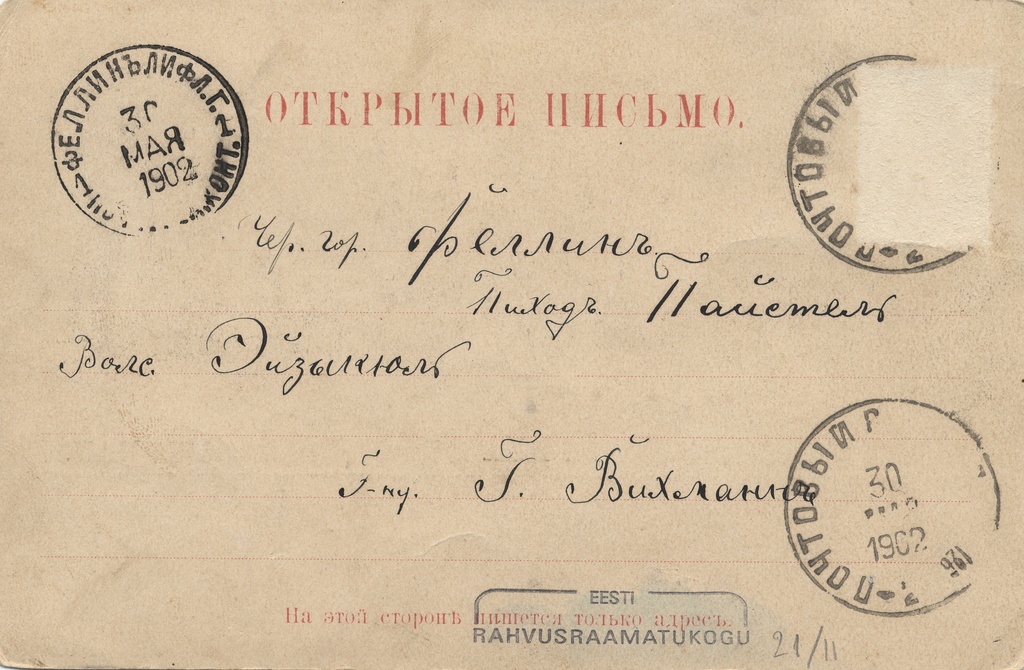 ФЕЛЛИНЪ ЛИФЛ.Г. ПОЧ КОНТ.
30
МАЯ
1902
ОТКРЫТОЕ ПИСЬМО.
ПОЧТОВЫЙ
Чер. гор. Феллинъ
Пиходъ. Пайстель
Волс. Эйзыкюль
Г-ну. Г. Вихманнъ
ПОЧТОВЫЙ
30
1902
На этой сторонѣ пишется только адресъ.
EESTI
RAHVUSRAAMATUKOGU
21/II